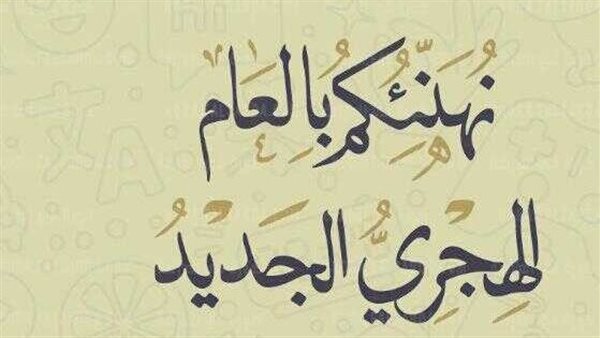 نُهَنِّئُكُم بِالعَامِ
الهِجْرِيِّ الجَدِيدِ